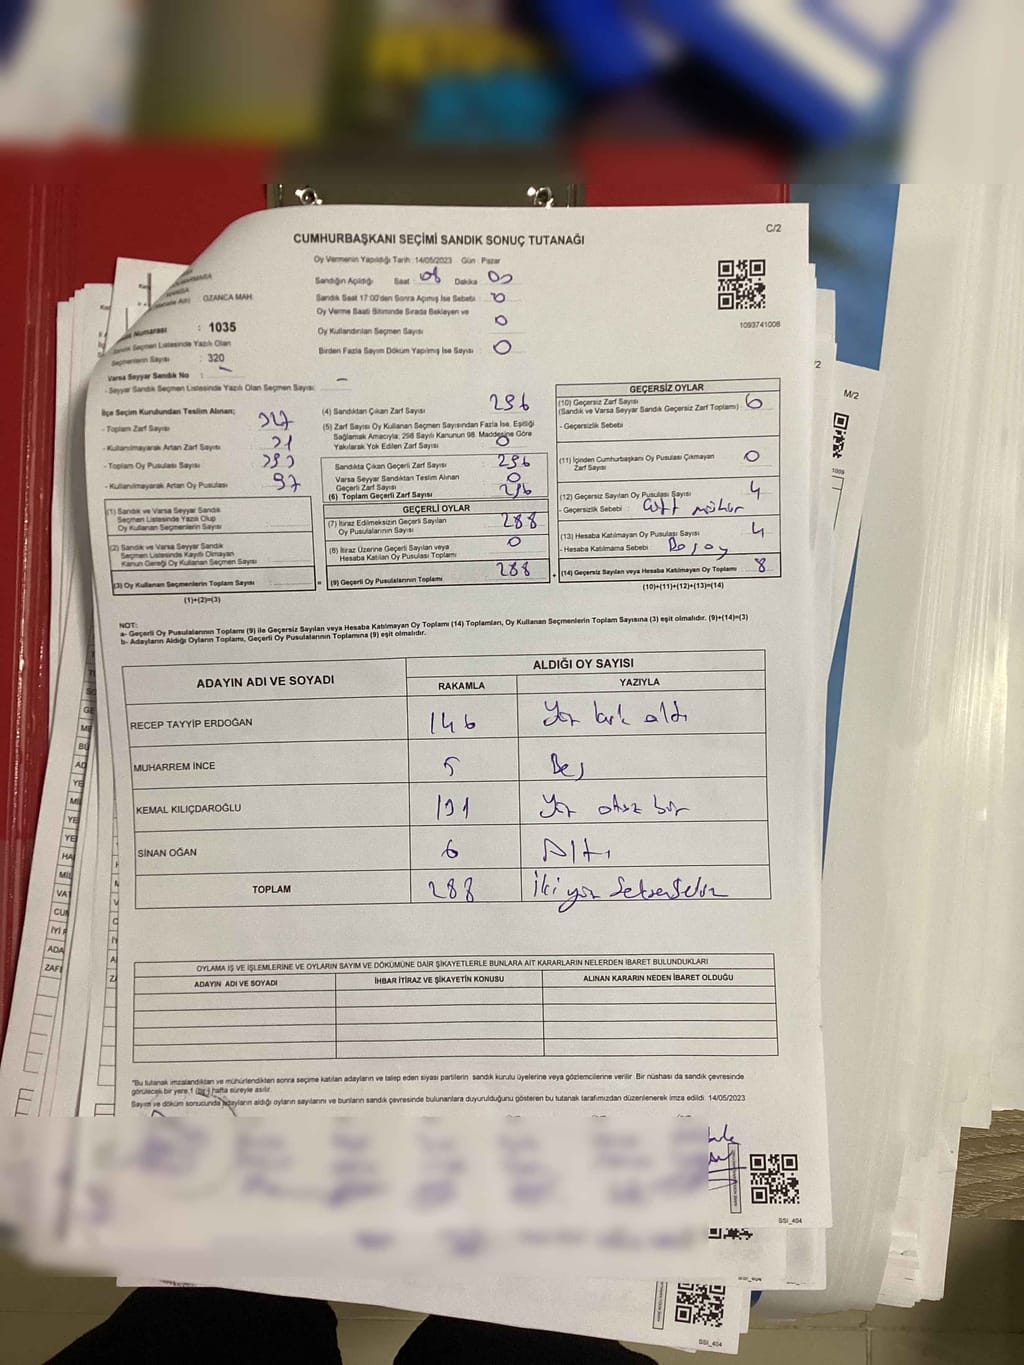 C/2
CUMHURBAŞKANI SEÇİMİ SANDIK SONUÇ TUTANAĞI
Oy Vermenin Yapıldığı Tarih :14/05/2023 Gün : Pazar
Sandığın Açıldığı Saat : 08 Dakika : 00
Sandık Saat 17:00'den Sonra Açılmış İse Sebebi : 0
Oy Verme Saati Bitiminde Sırada Bekleyen ve
Oy Kullandırılan Seçmen Sayısı 0
Birden Fazla Sayım Döküm Yapılmış İse Sayısı : 0
1093741008
MARMARA
OZANCA MAH.
Numarası : 1035
Sandık Seçmen Listesinde Yazılı Olan
Seçmenlerin Sayısı : 320
Varsa Seyyar Sandık No : -
- Seyyar Sandık Seçmen Listesinde Yazılı Olan Seçmen Sayısı: -
İlçe Seçim Kurulundan Teslim Alınan;
- Toplam Zarf Sayısı :
- Kullanılmayarak Artan Zarf Sayısı :
- Toplam Oy Pusulası Sayısı :
- Kullanılmayarak Artan Oy Pusulası : 97
(1) Sandık ve Varsa Seyyar Sandık
Seçmen Listesinde Yazılı Olup
Oy Kullanan Seçmenlerin Sayısı
(2) Sandık ve Varsa Seyyar Sandık
Seçmen Listesinde Kayıtlı Olmayan
Kanun Gereği Oy Kullanan Seçmen Sayısı
(3) Oy Kullanan Seçmenlerin Toplam Sayısı
(1)+(2)=(3)
(4) Sandıktan Çıkan Zarf Sayısı 296
(5) Zarf Sayısı Oy Kullanan Seçmen Sayısından Fazla İse, Eşitliği
Sağlamak Amacıyla; 298 Sayılı Kanunun 98. Maddesine Göre
Yakılarak Yok Edilen Zarf Sayısı 0
Sandıkta Çıkan Geçerli Zarf Sayısı 296
Varsa Seyyar Sandıktan Teslim Alınan
Geçerli Zarf Sayısı 0
(6) Toplam Geçerli Zarf Sayısı 296
GEÇERLİ OYLAR
(7) İtiraz Edilmeksizin Geçerli Sayılan
Oy Pusulalarının Sayısı 288
(8) İtiraz Üzerine Geçerli Sayılan veya
Hesaba Katılan Oy Pusulası Toplamı 0
= (9) Geçerli Oy Pusulalarının Toplamı 288
GEÇERSİZ OYLAR
(10) Geçersiz Zarf Sayısı
(Sandık ve Varsa Seyyar Sandık Geçersiz Zarf Toplamı)
- Geçersizlik Sebebi
(11) İçinden Cumhurbaşkanı Oy Pusulası Çıkmayan
Zarf Sayısı 0
(12) Geçersiz Sayılan Oy Pusulası Sayısı 4
- Geçersizlik Sebebi : Çift mühür
(13) Hesaba Katılmayan Oy Pusulası Sayısı 4
- Hesaba Katılmama Sebebi
+ (14) Geçersiz Sayılan veya Hesaba Katılmayan Oy Toplamı 8
(10)+(11)+(12)+(13)=(14)
NOT:
a- Geçerli Oy Pusulalarının Toplamı (9) ile Geçersiz Sayılan veya Hesaba Katılmayan Oy Toplamı (14) Toplamları, Oy Kullanan Seçmenlerin Toplam Sayısına (3) eşit olmalıdır. (9)+(14)=(3)
b- Adayların Aldığı Oyların Toplamı, Geçerli Oy Pusulalarının Toplamına (9) eşit olmalıdır.
ADAYIN ADI VE SOYADI ALDIĞI OY SAYISI
RAKAMLA YAZIYLA
RECEP TAYYİP ERDOĞAN 146 Yüz kırk altı
MUHARREM İNCE 5 Beş
KEMAL KILIÇDAROĞLU 131 Yüz otuz bir
SİNAN OĞAN 6 Altı
TOPLAM 288 İkiyüz Seksensekiz
OYLAMA İŞ VE İŞLEMLERİNE VE OYLARIN SAYIM VE DÖKÜMÜNE DAİR ŞİKAYETLERLE BUNLARA AİT KARARLARIN NELERDEN İBARET BULUNDUKLARI
ADAYIN ADI VE SOYADI İHBAR İTİRAZ VE ŞİKAYETİN KONUSU ALINAN KARARIN NEDEN İBARET OLDUĞU
*Bu tutanak imzalandıktan ve mühürlendikten sonra seçime katılan adayların ve talep eden siyasi partilerin sandık kurulu üyelerine veya gözlemcilerine verilir. Bir nüshası da sandık çevresinde
görülecek bir yere 1 (bir) hafta süreyle asılır.
Sayım ve döküm sonucunda adayların aldığı oyların sayılarını ve bunların sandık çevresinde bulunanlara duyurulduğunu gösteren bu tutanak tarafımızdan düzenlenerek imza edildi. 14/05/2023
SSI_404
SSI_404
M/2